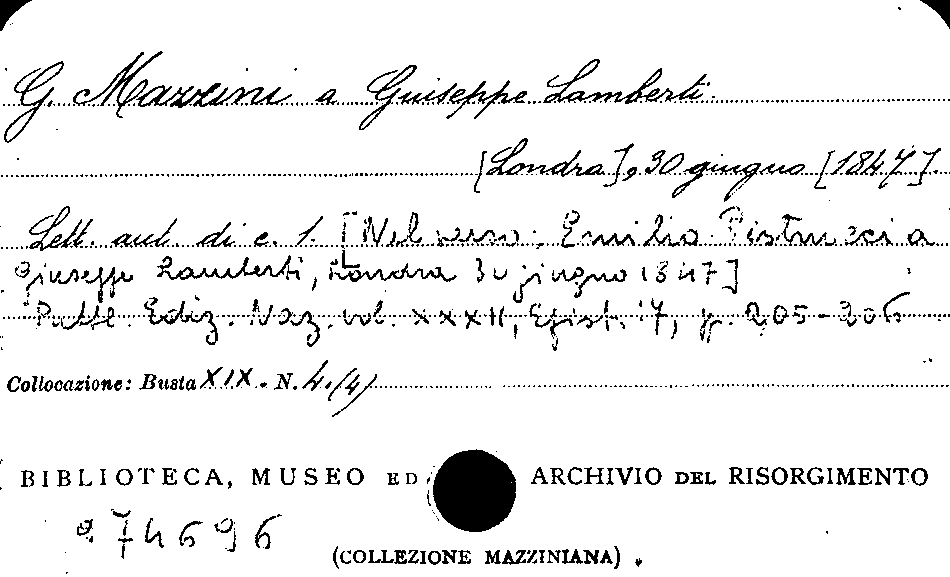 G. Mazzini a Giuseppe Lamberti.
[Londra], 30 giugno [1847].
Lett. aut. di c. 1. [Nel verso: Emilio Pistrucci a
Giuseppe Lamberti, Londra 30 giugno 1847]
Pubbl. Ediz. Naz. vol. XXXII, Epist. 17, p. 205-206
Collocazione: Busta XIX. N. 4.(4)
BIBLIOTECA, MUSEO ED ARCHIVIO DEL RISORGIMENTO
74696
(COLLEZIONE MAZZINIANA).